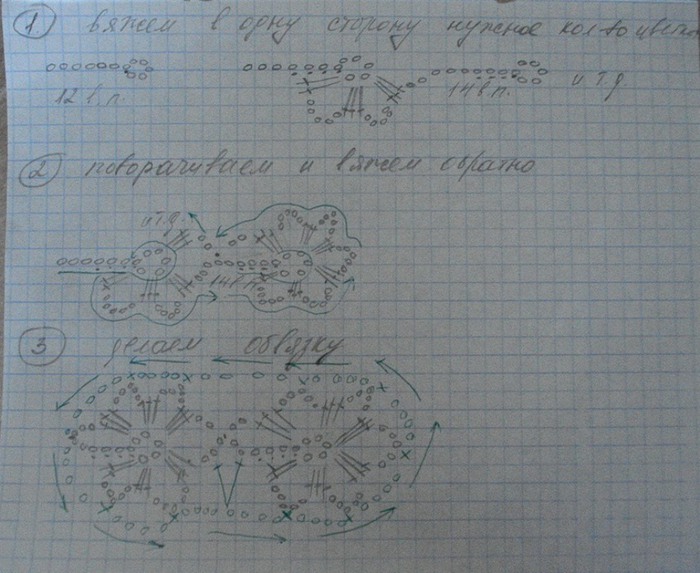 1. вяжем в одну сторону нужное кол-во цветк
12 в.п.
14 в.п.
и т.д.
2 поворачиваем и вяжем обратно
и т.д.
14 в.п.
3 делаем обвязку